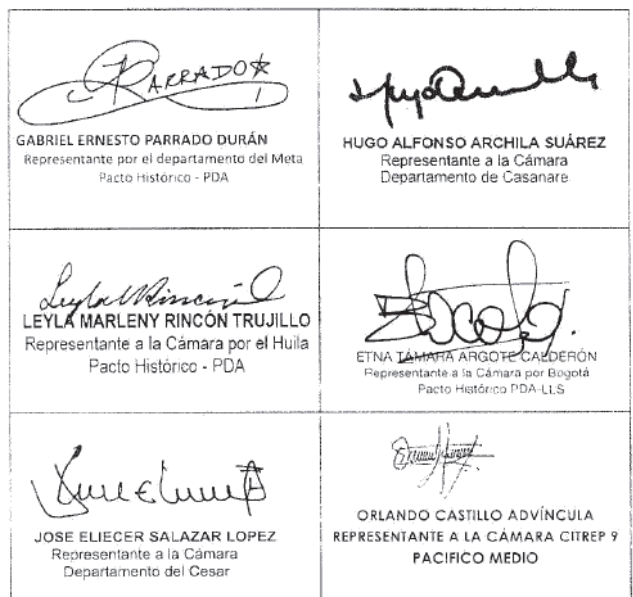 PARRADO
GABRIEL ERNESTO PARRADO DURÁN
Representante por el departamento del Meta
Pacto Histórico - PDA
HUGO ALFONSO ARCHILA SUÁREZ
Representante a la Cámara
Departamento de Casanare
LEYLA MARLENY RINCÓN TRUJILLO
Representante a la Cámara por el Huila
Pacto Histórico - PDA
ETNA TÁMARA ARGOTE CALDERÓN
Representante a la Cámara por Bogotá
Pacto Histórico PDA-LLS
JOSE ELIECER SALAZAR LOPEZ
Representante a la Cámara
Departamento del Cesar
ORLANDO CASTILLO ADVÍNCULA
REPRESENTANTE A LA CÁMARA CITREP 9
PACIFICO MEDIO